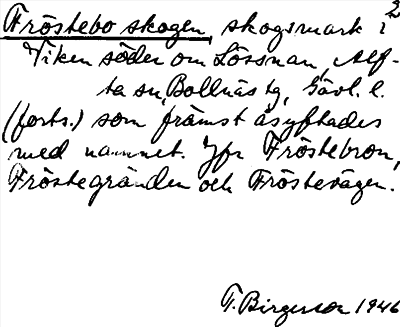 2
Fröstebo skogen, skogsmark i
Viken söder om Lössnan, Alf-
ta sn, Bollnäs tg, Gävl. l.
(forts.) som främst åsyftades
med namnet. Jfr Fröstebron,
Fröstegränden och Fröstevägen.
T. Birgersson 1946